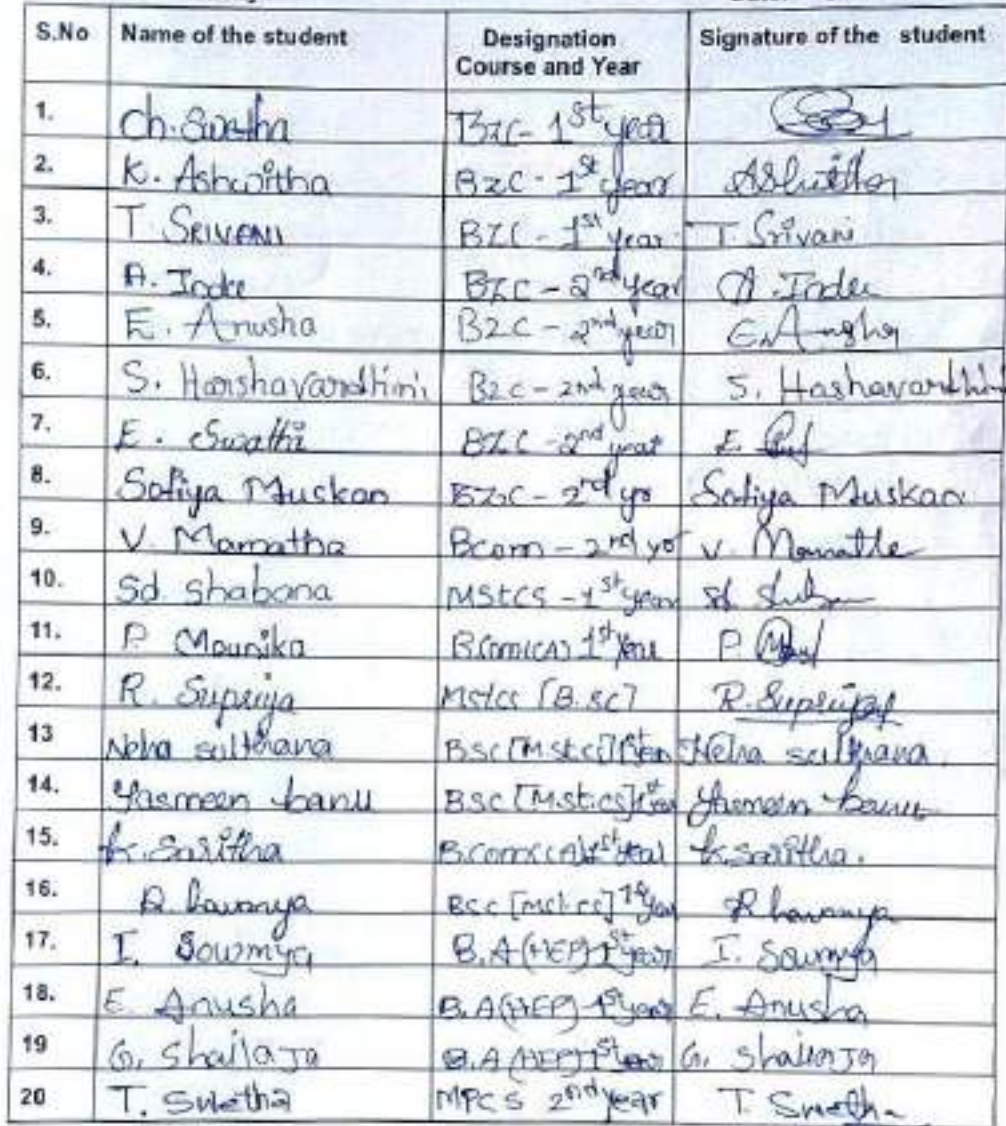 S.No Name of the student Designation Course and Year Signature of the student
1. Ch. Swetha BZC - 1st year
2. K. Ashwitha BZC - 1st year Ashwitha
3. T SRIVANI BZC - 1st year T. Srivani
4. A. Indu BZC - 2nd year A. Indu
5. E. Anusha B2C - 2nd year E. Anusha
6. S. Harshavardhini B2C - 2nd year S. Hashavardhini
7. E. Swathi BZC - 2nd year E.
8. Safiya Muskan BZC - 2nd yr Safiya Muskan
9. V. Mamatha Bcom - 2nd yr V. Mamatha
10. Sd. Shabana MStCS - 1st year Sd
11. P. Mounika B.Com(CA) 1st Year P.
12. R. Supriya Mstcs [B.sc] R. Supriya
13 Neha sulthana BSC [Mstcs] 1st Year Neha sulthana
14. Yasmeen banu BSC [M.st.cs] 1st year Yasmeen banu
15. K. Saritha B.com(CA) 1st year K. saritha.
16. R. Lavanya BSC [Mst.cs] 1st year R Lavanya
17. I. Sowmya B.A (HEP) 1st year I. Sowmya
18. E. Anusha B.A (HEP) 1st year E. Anusha
19 G. Shailaja B.A (HEP) 1st year G. Shailaja
20 T. Swetha MPCS 2nd year T. Swetha